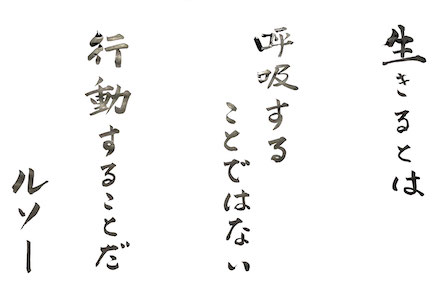 生きるとは
呼吸する
ことではない
行動することだ
ルソー